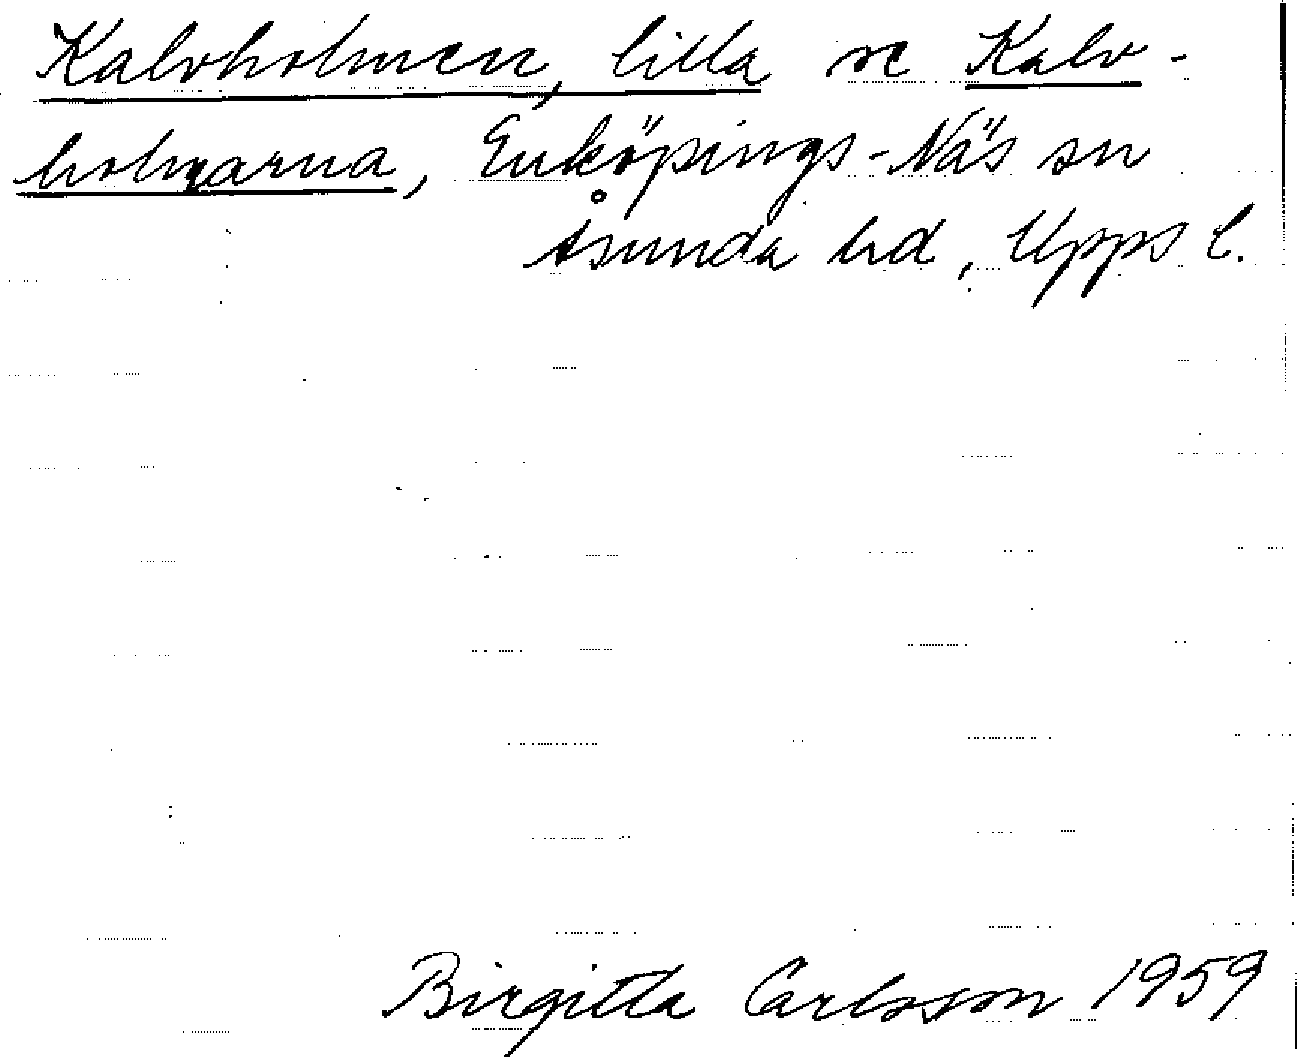 Kalvholmen, lilla se Kalv-
holmarna, Enköpings-Näs sn
Åsunda hd, Upps l.
Birgitta Carlsson 1959